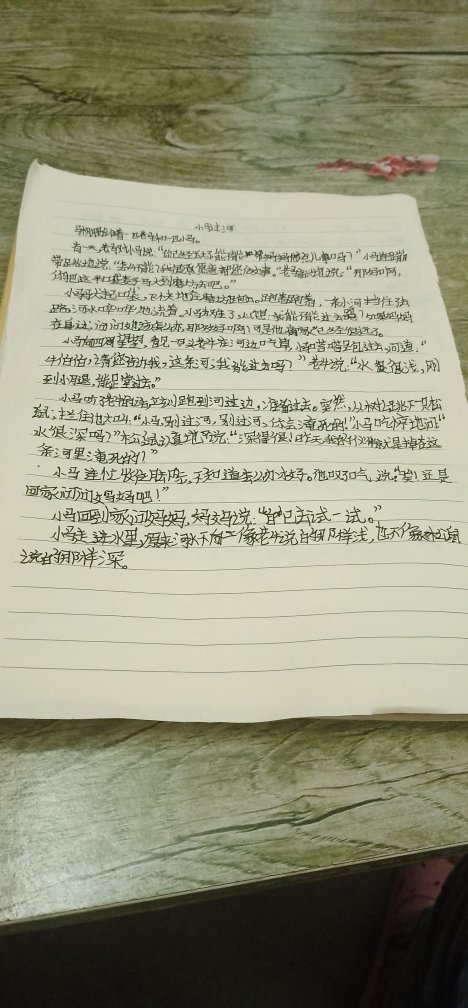 小马过河
马棚里住着一匹老马和一匹小马。
有一天,老马对小马说:“你已经长大了,能帮妈妈做点儿事吗?”小马连蹦
带跳地说:“怎么不能?我很愿意帮您做事。”老马高兴地说:“那好啊,
你把这半口袋麦子驮到磨坊去吧。”
小马驮起口袋,飞快地往磨坊跑去。跑着跑着,一条小河挡住了去
路,河水哗哗地流着。小马为难了,心想:我能不能过去呢?如果妈妈
在身边,问问她该怎么办,那多好啊!可是他离家已经很远了。
小马向四周望望,看见一头老牛在河边吃草,小马嗒嗒嗒跑过去,问道:“
牛伯伯,请您告诉我,这条河,我能过去吗?”老牛说:“水很浅,刚
到小腿,能趟过去。”
小马听了老牛的话,立刻跑到河边,准备过去。突然,从树上跳下一只松
鼠,拦住他大叫:“小马,别过河,别过河,你会淹死的!”小马吃惊地问:“
水很深吗?”松鼠认真地说:“深得很!昨天,我的一个伙伴就是掉在这
条河里淹死的!”
小马连忙收住脚步,不知道怎么办才好。他叹了口气,说:“唉!还是
回家问问妈妈吧!”
小马回到家问妈妈,妈妈说:“自己去试一试。”
小马走进水里,原来河水不像老牛说的那样浅,也不像松鼠
说的那样深。